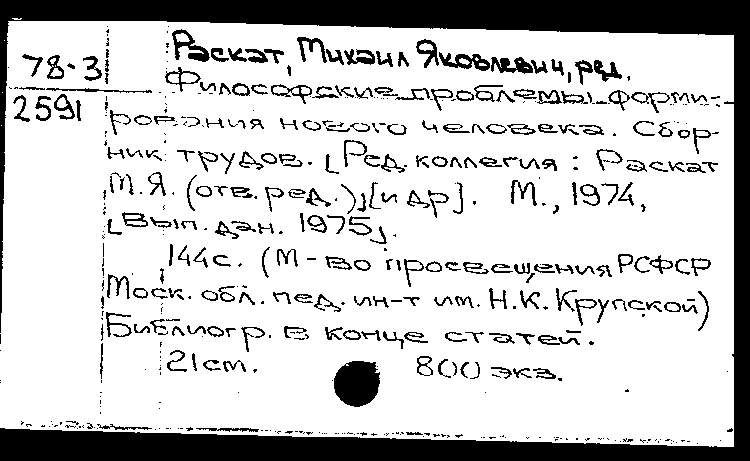 78-3
2591
Раскат, Михаил Яковлевич, ред.
Философские проблемы форми-
рования нового человека. Сбор-
ник трудов. [Ред. коллегия: Раскат
М.Я. (отв. ред.)] [и др]. М., 1974,
[Вып. дан. 1975].
144с. (М-во просвещения РСФСР
Моск. обл. пед. ин-т им. Н.К. Крупской)
Библиогр. в конце статей.
21 см. 800 экз.